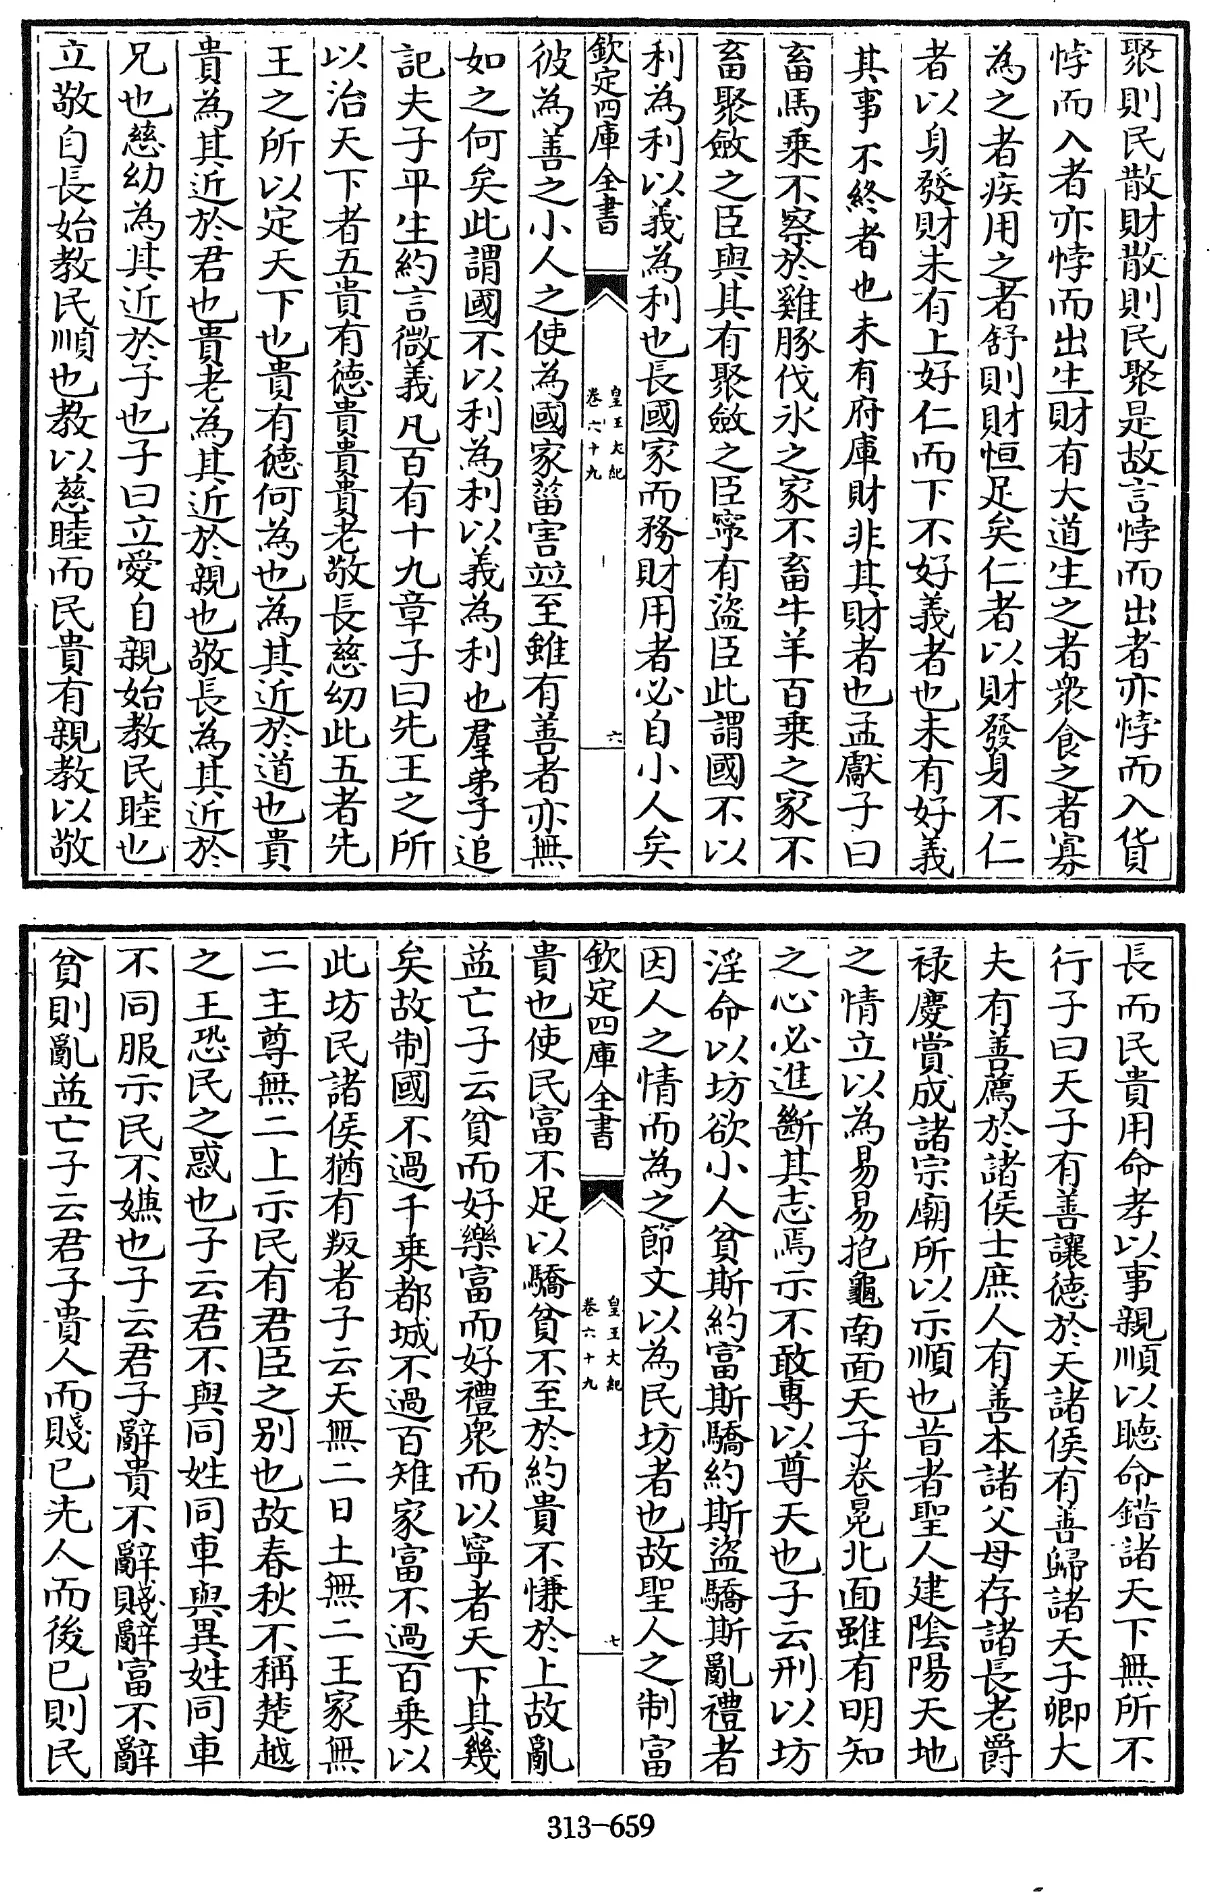 聚則民散財散則民聚是故言悖而出者亦悖而入貨
悖而入者亦悖而出生財有大道生之者衆食之者寡
為之者疾用之者舒則財恒足矣仁者以財發身不仁
者以身發財未有上好仁而下不好義者也未有好義
其事不終者也未有府庫財非其財者也孟獻子曰
畜馬乗不察於雞豚伐氷之家不畜牛羊百乗之家不
畜聚斂之臣與其有聚斂之臣寜有盜臣此謂國不以
利為利以義為利也長國家而務財用者必自小人矣
欽定四庫全書
皇王大紀
卷六十九
六
彼為善之小人之使為國家菑害竝至雖有善者亦無
如之何矣此謂國不以利為利以義為利也羣弟子追
記夫子平生約言微義凡百有十九章子曰先王之所
以治天下者五貴有徳貴貴貴老敬長慈幼此五者先
王之所以定天下也貴有徳何為也為其近於道也貴
貴為其近於君也貴老為其近於親也敬長為其近於
兄也慈幼為其近於子也子曰立愛自親始教民睦也
立敬自長始教民順也教以慈睦而民貴有親教以敬
長而民貴用命孝以事親順以聽命錯諸天下無所不
行子曰天子有善讓徳於天諸侯有善歸諸天子卿大
夫有善薦於諸侯士庶人有善本諸父母存諸長老爵
禄慶賞成諸宗廟所以示順也昔者聖人建陰陽天地
之情立以為易易抱龜南面天子卷冕北面雖有明知
之心必進斷其志焉示不敢專以尊天也子云刑以坊
淫命以坊欲小人貧斯約富斯驕約斯盜驕斯亂禮者
因人之情而為之節文以為民坊者也故聖人之制富
欽定四庫全書
皇王大紀
卷六十九
七
貴也使民富不足以驕貧不至於約貴不慊於上故亂
益亡子云貧而好樂富而好禮衆而以寜者天下其幾
矣故制國不過千乗都城不過百雉家富不過百乗以
此坊民諸侯猶有叛者子云天無二日土無二王家無
二主尊無二上示民有君臣之别也故春秋不稱楚越
之王恐民之惑也子云君不與同姓同車與異姓同車
不同服示民不嫌也子云君子辭貴不辭賤辭富不辭
貧則亂益亡子云君子貴人而賤已先人而後已則民
313-659